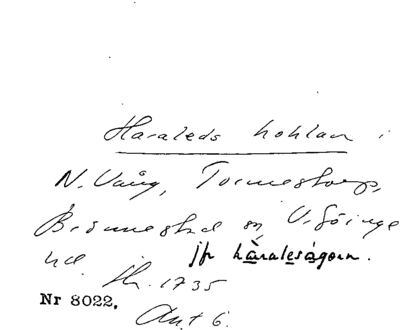 Haraleds hohlan i
N. Vång, Tormestorp,
Brönnestad sn, V. Göinge
hd. jfr håralesågorn.
Hr. 1735
Nr 8022.
Ant 6.